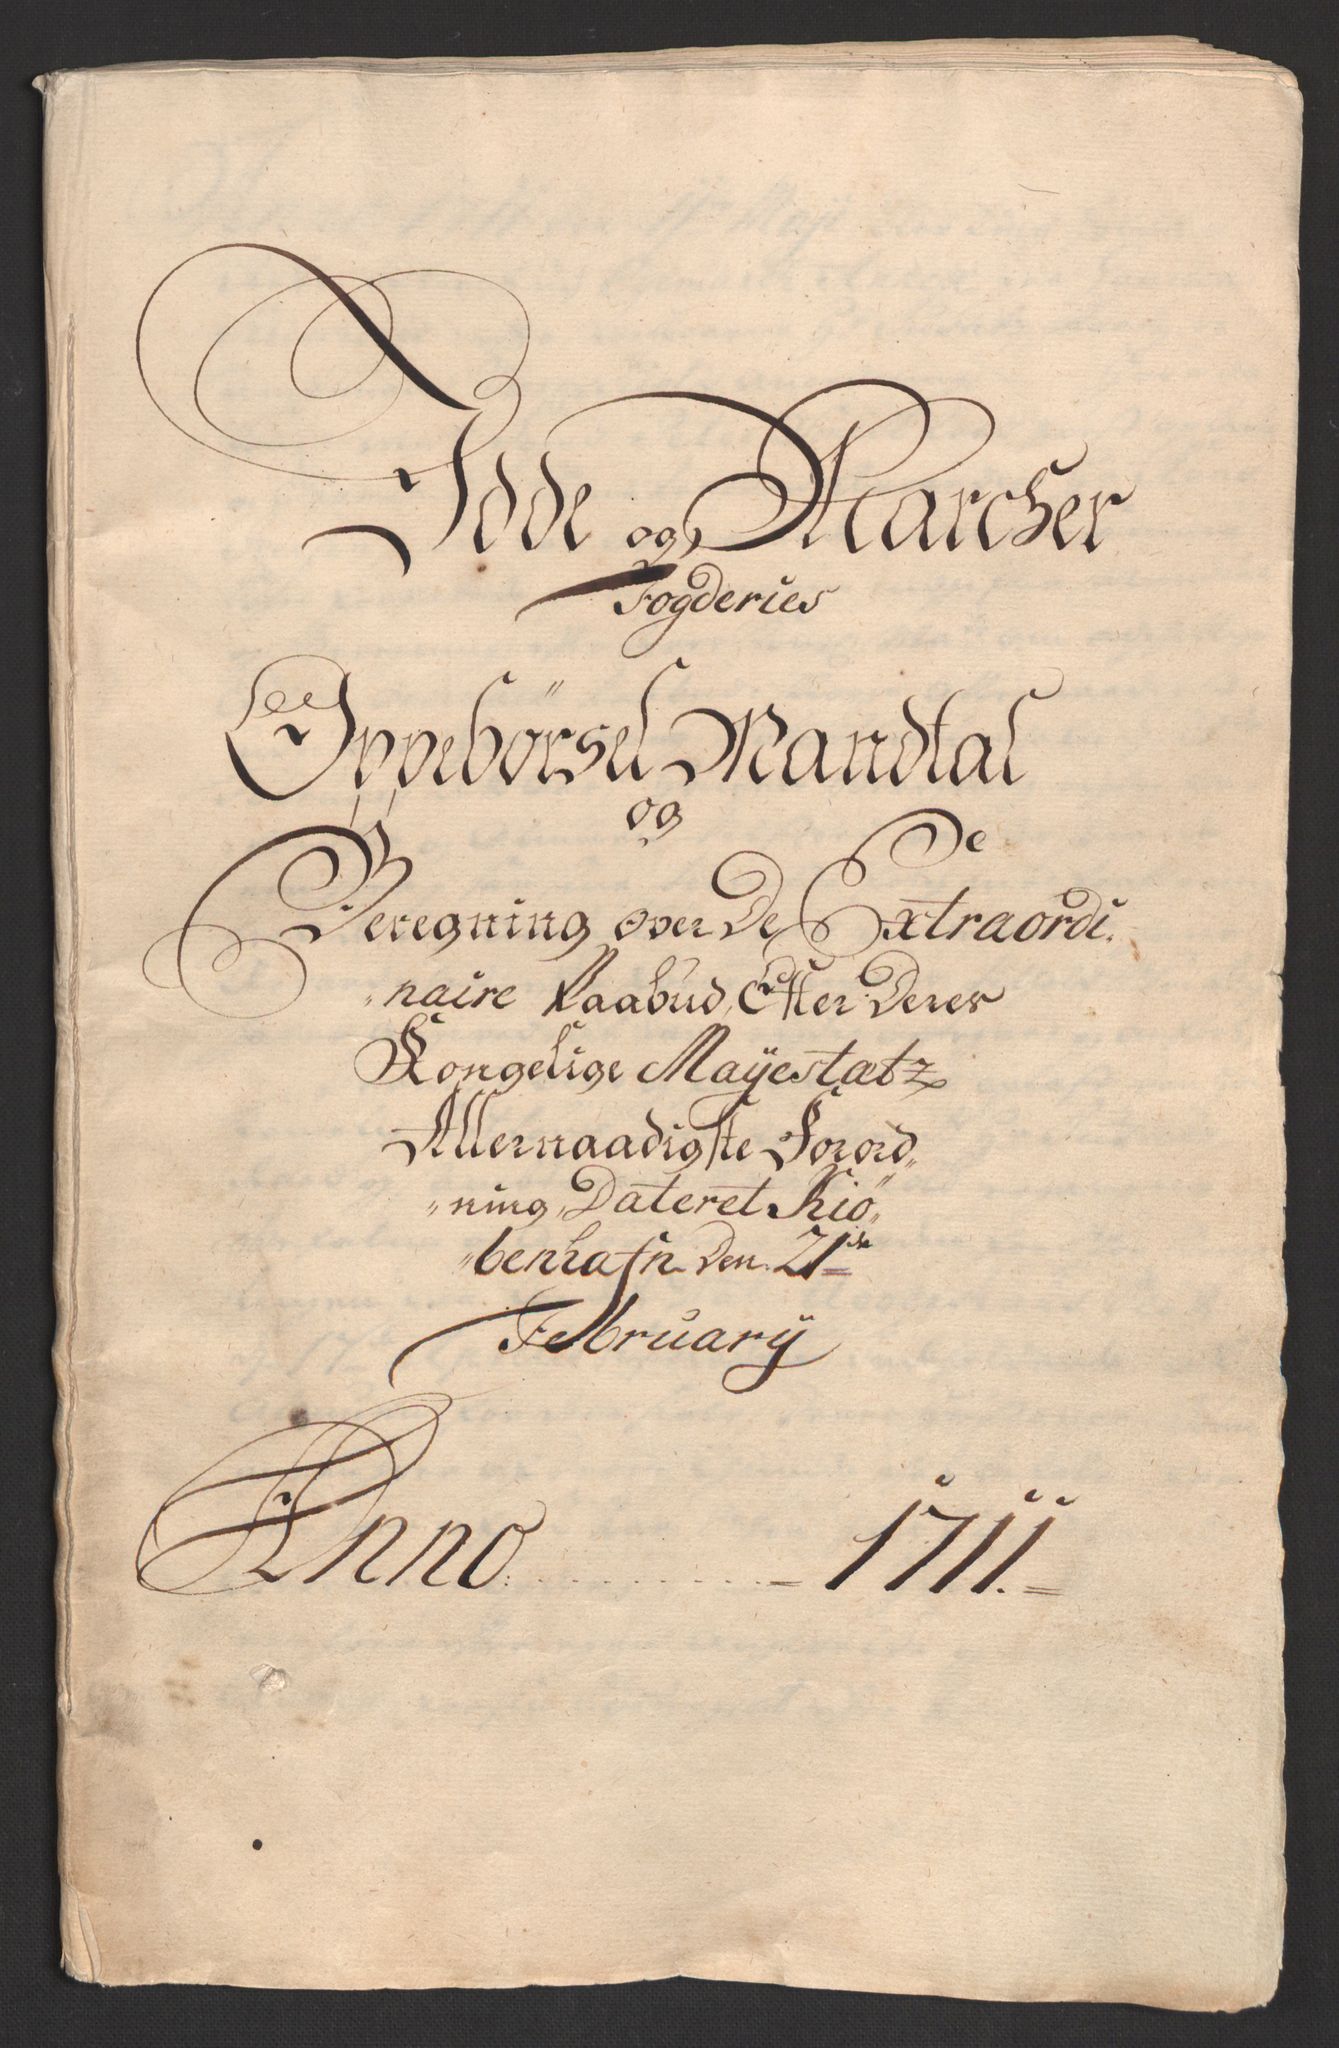 Idde og Marcher
Fogderies
Oppebörsel Mandtal
og
Beregning over De Extraordi
naire Paabud, Efter Deres
Kongelige Mayestætz
Allernaadigste Forord„
„ning, Dateret Kiö„
„benhafn den 21de
February
Anno 1711.